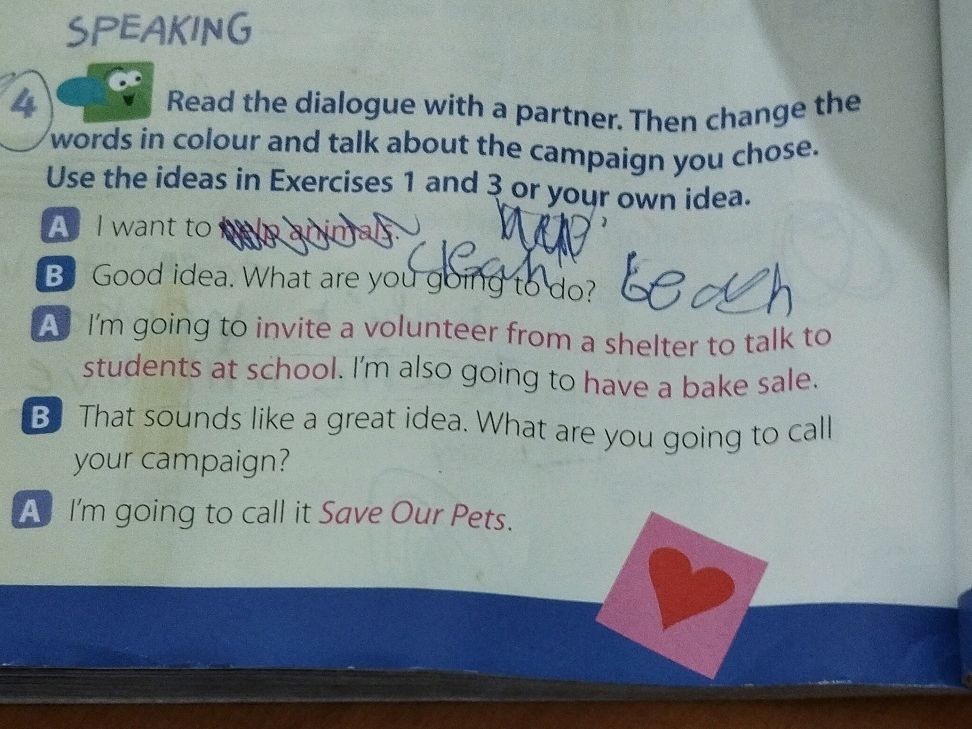 SPEAKING
4 Read the dialogue with a partner. Then change the
words in colour and talk about the campaign you chose.
Use the ideas in Exercises 1 and 3 or your own idea.
A I want to help animals.
clean beach
B Good idea. What are you going to do?
A I'm going to invite a volunteer from a shelter to talk to
students at school. I'm also going to have a bake sale.
B That sounds like a great idea. What are you going to call
your campaign?
A I'm going to call it Save Our Pets.